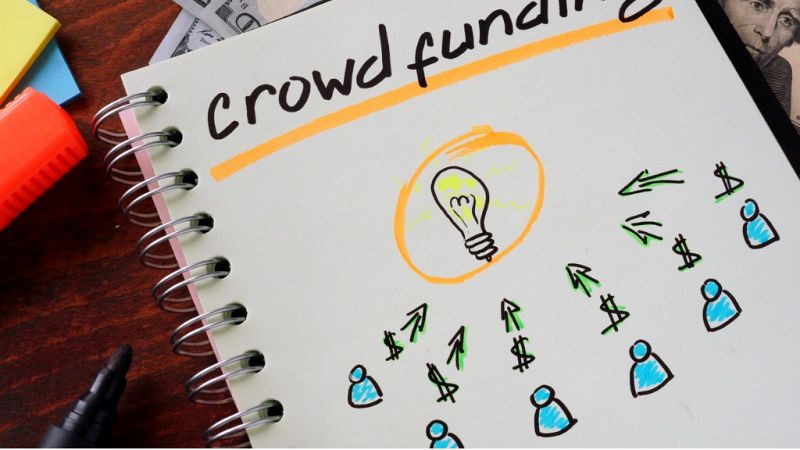 crowd funding
$
$
$
$
$
$